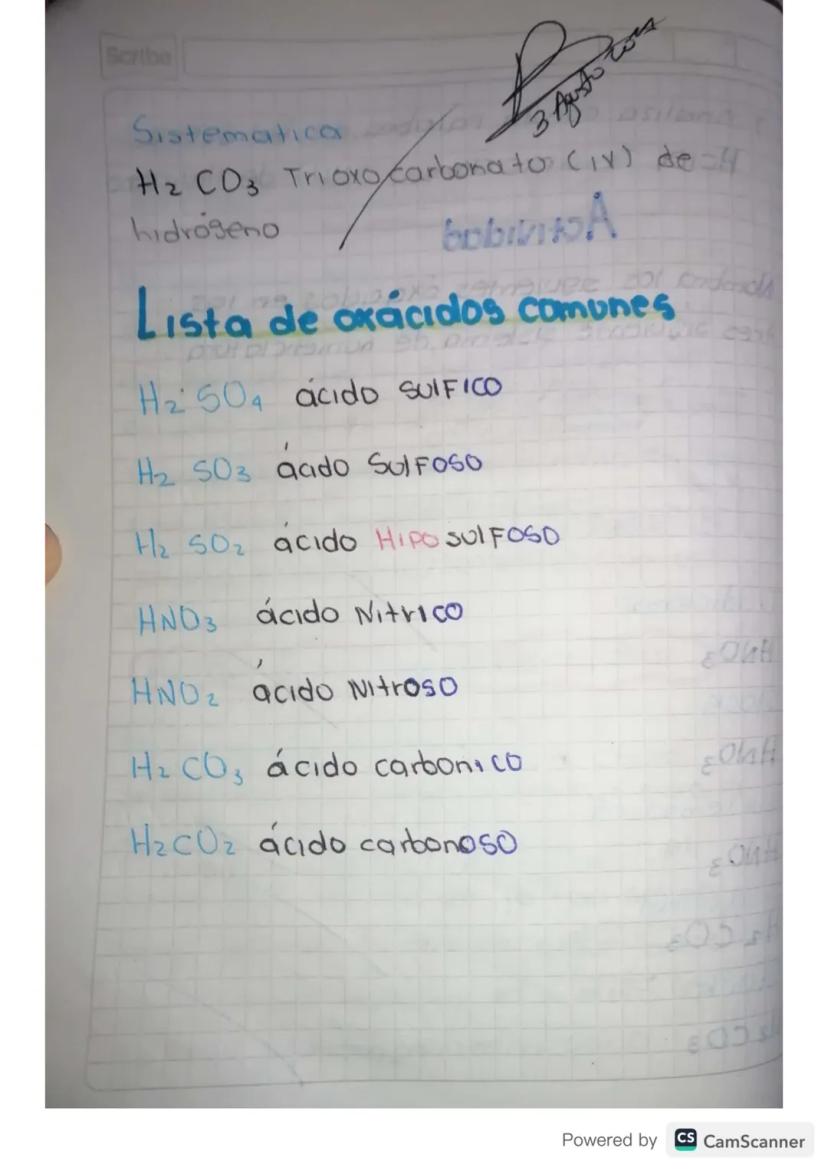 Scribe
3 Agosto
Sistematica
H₂ CO₃ Trioxo carbonato (IV) de
hidrógeno
Lista de oxácidos comunes
H₂ SO₄ ácido SulFICO
H₂ SO₃ ácido SulFOSO
H₂ SO₂ ácido HIPO SulFOSO
HNO₃ ácido NitrICO
HNO₂ ácido NitrOSO
H₂ CO₃ ácido carbonICO
H₂CO₂ ácido carbonOSO
Powered by CS CamScanner